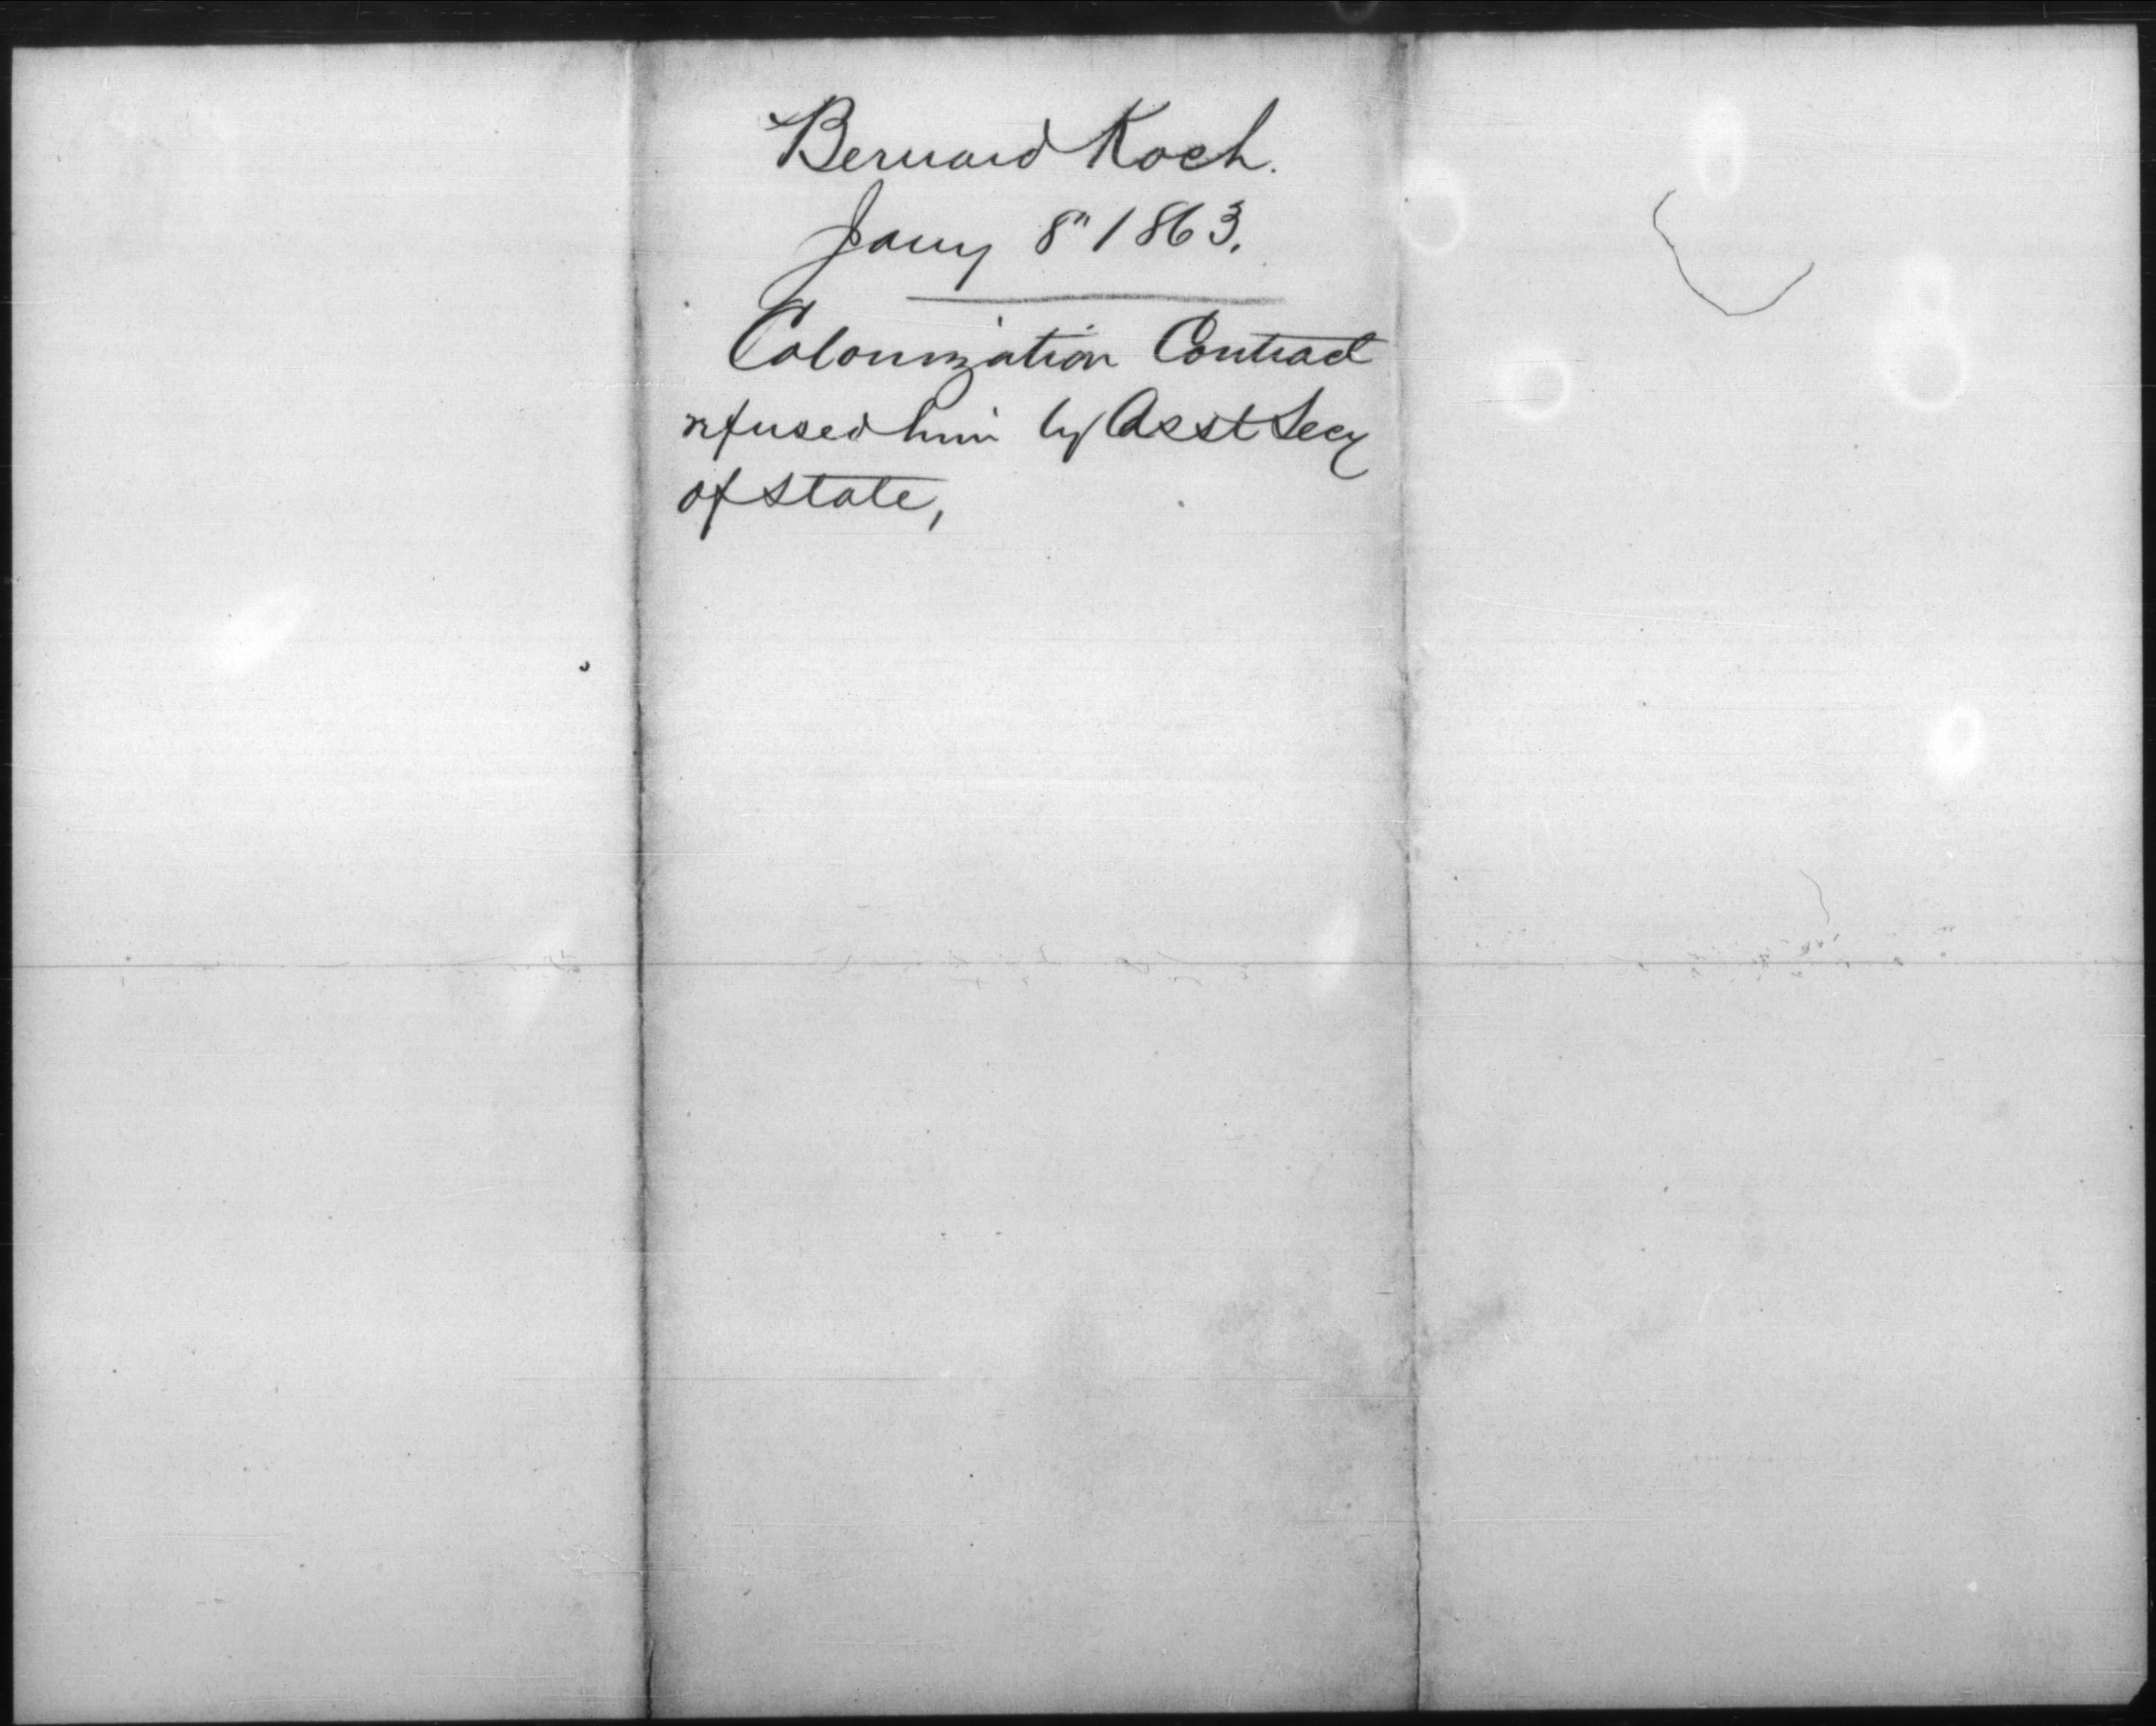 Bernard Koch.
Jany 8" 1863.
Colonization Contract
refused him by Asst Secy
of State,